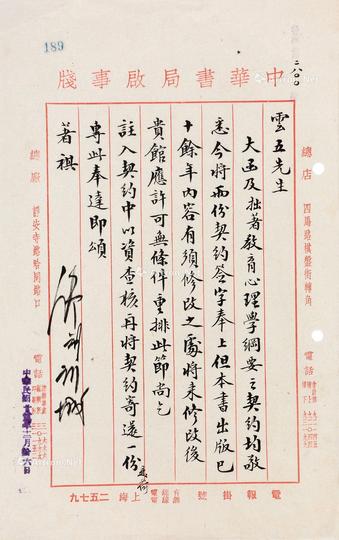 189
二八〇〇
中華書局啟事牋
總店 四馬路棋盤街轉角
電話
雲五先生
大函及拙著教育心理學綱要之契約均敬
悉今將兩份契約簽字奉上但本書出版已
十餘年內容有須修改之處將來修改後
貴館應許可無條件重排此節尚乞
註入契約中以資查核再將契約寄還一份為荷
專此奉達即頌
著祺
總廠 靜安寺路哈同路口
電話
電報掛號
有線無線電 上海 二五七九